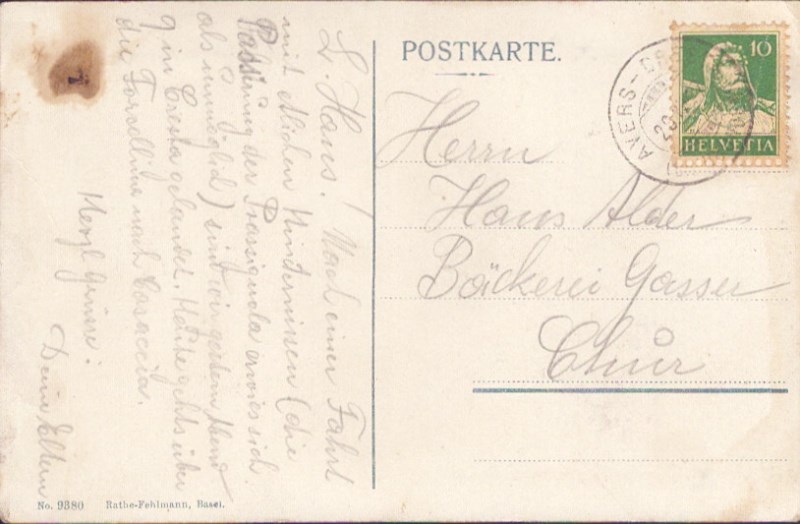 POSTKARTE.
10
HELVETIA
AVERS-
Herrn
Hans Alder
Bäckerei Gasser
Chur
L. Hans! Nach einer Fahrt
mit etlichen Hindernissen (die
der Prassignola erwies sich
als unmöglich) sind wir gestern Abend
in Cresta gelandet. Heute gehts über
die Forcellina nach Casaccia.
Herzl Grüsse!
Deine Eltern
No. 9380 Rathe-Fehlmann, Basel.